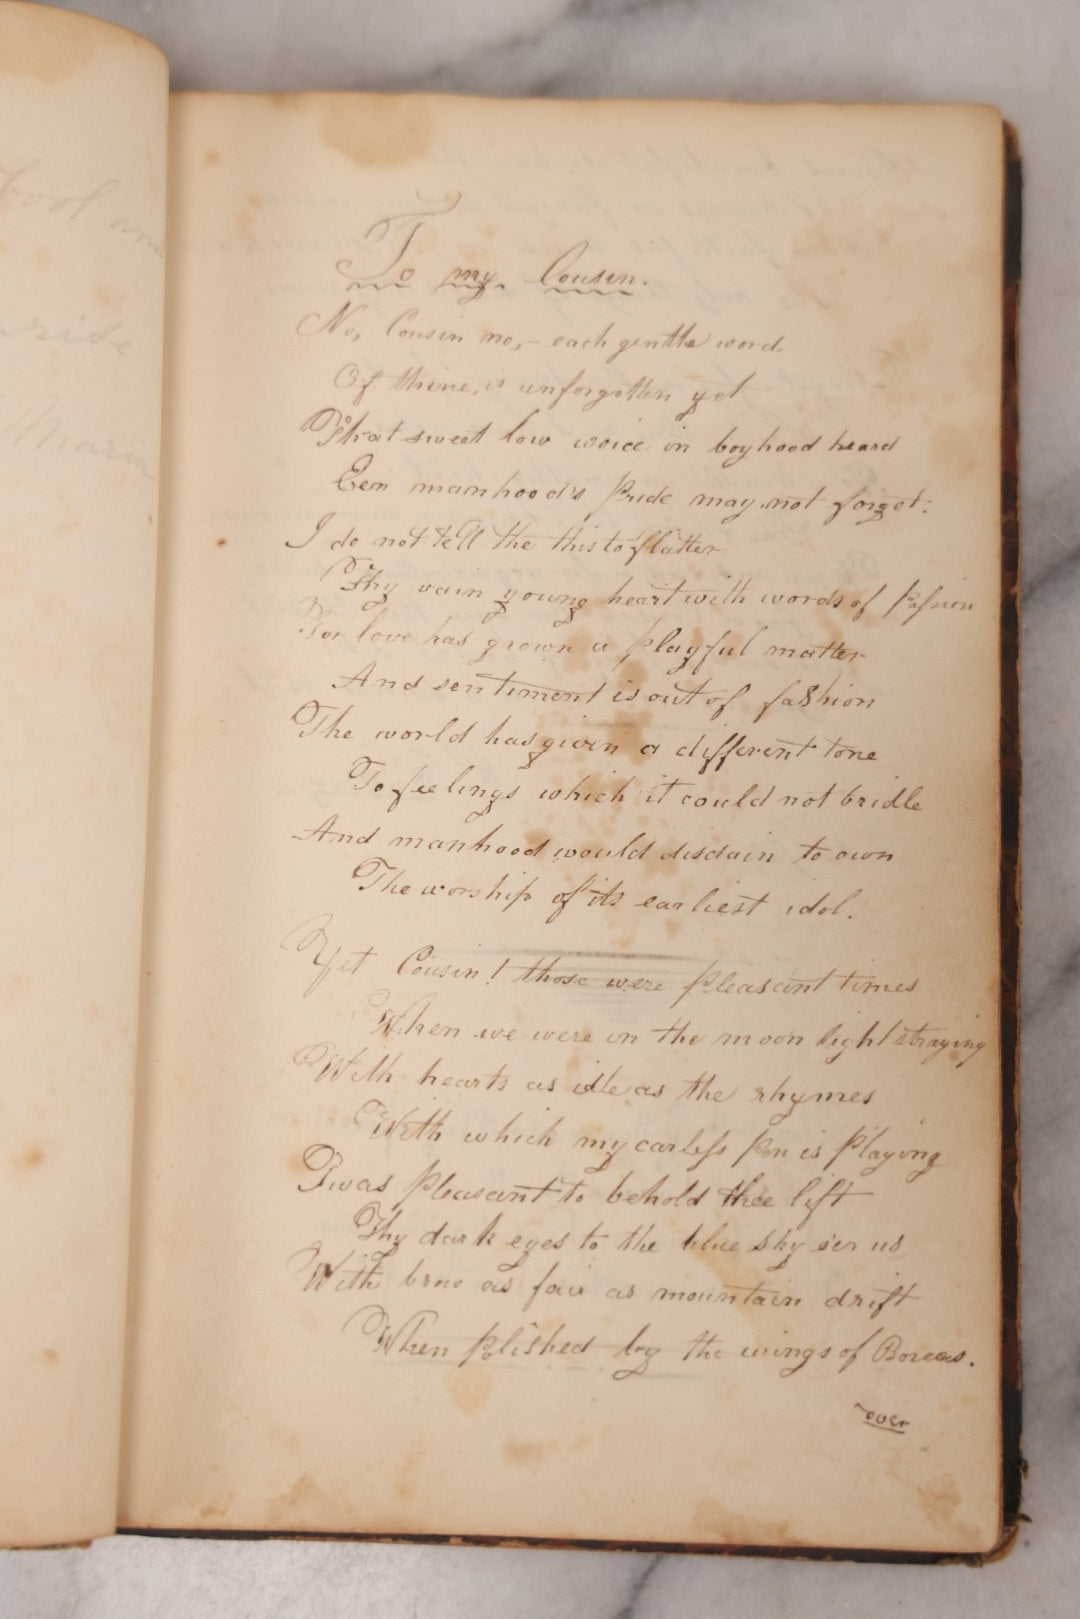 To my Cousin.
No, Cousin no, – each gentle word
Of thine, is unforgotten yet
That sweet low voice in boyhood heard
Een manhood's Pride may not forget.
I do not tell the this to flatter
Thy vain young heart with words of Passion
For love has grown a playful matter
And sentiment is out of fashion
The world has given a different tone
To feelings which it could not bridle
And manhood would disdain to own
The worship of its earliest idol.
Yet Cousin! those were pleasant times
When we were in the moon light straying
With hearts as idle as the rhymes
With which my carless Pen is Playing
Twas Pleasant to behold thee lift
Thy dark eyes to the blue sky oer us
With brow as fair as mountain drift
When Polished by the wings of Boreas.
over
write